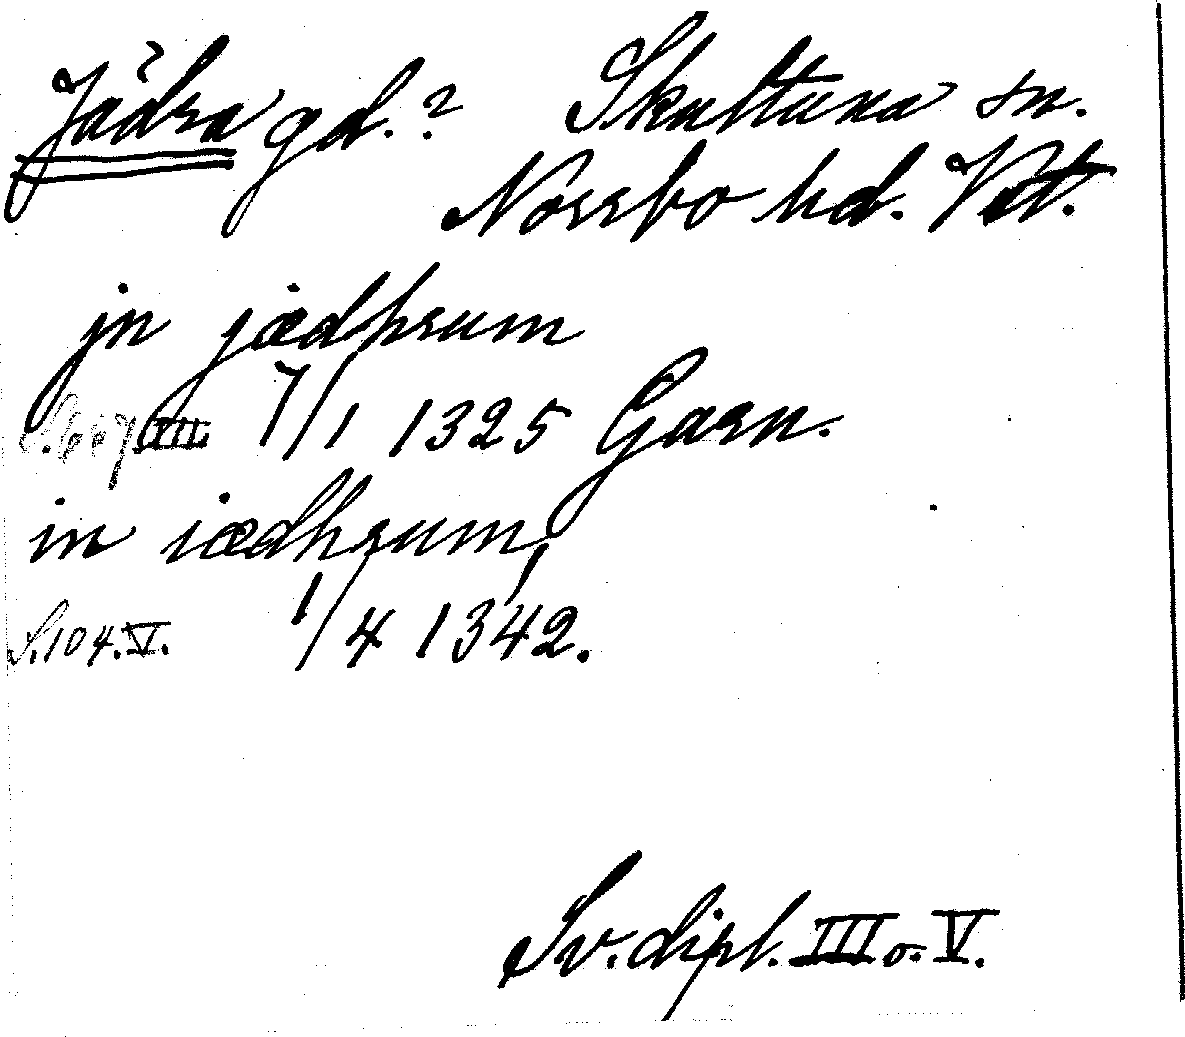 Jädra gd.? Skultuna sn.
Norrbo hd. Vstl.
jn jædhrum
S. 667 III. 7/1 1325 Garn.
in iædhrum,
S. 104. V. 1/4 1342.
Sv. dipl. III o. V.